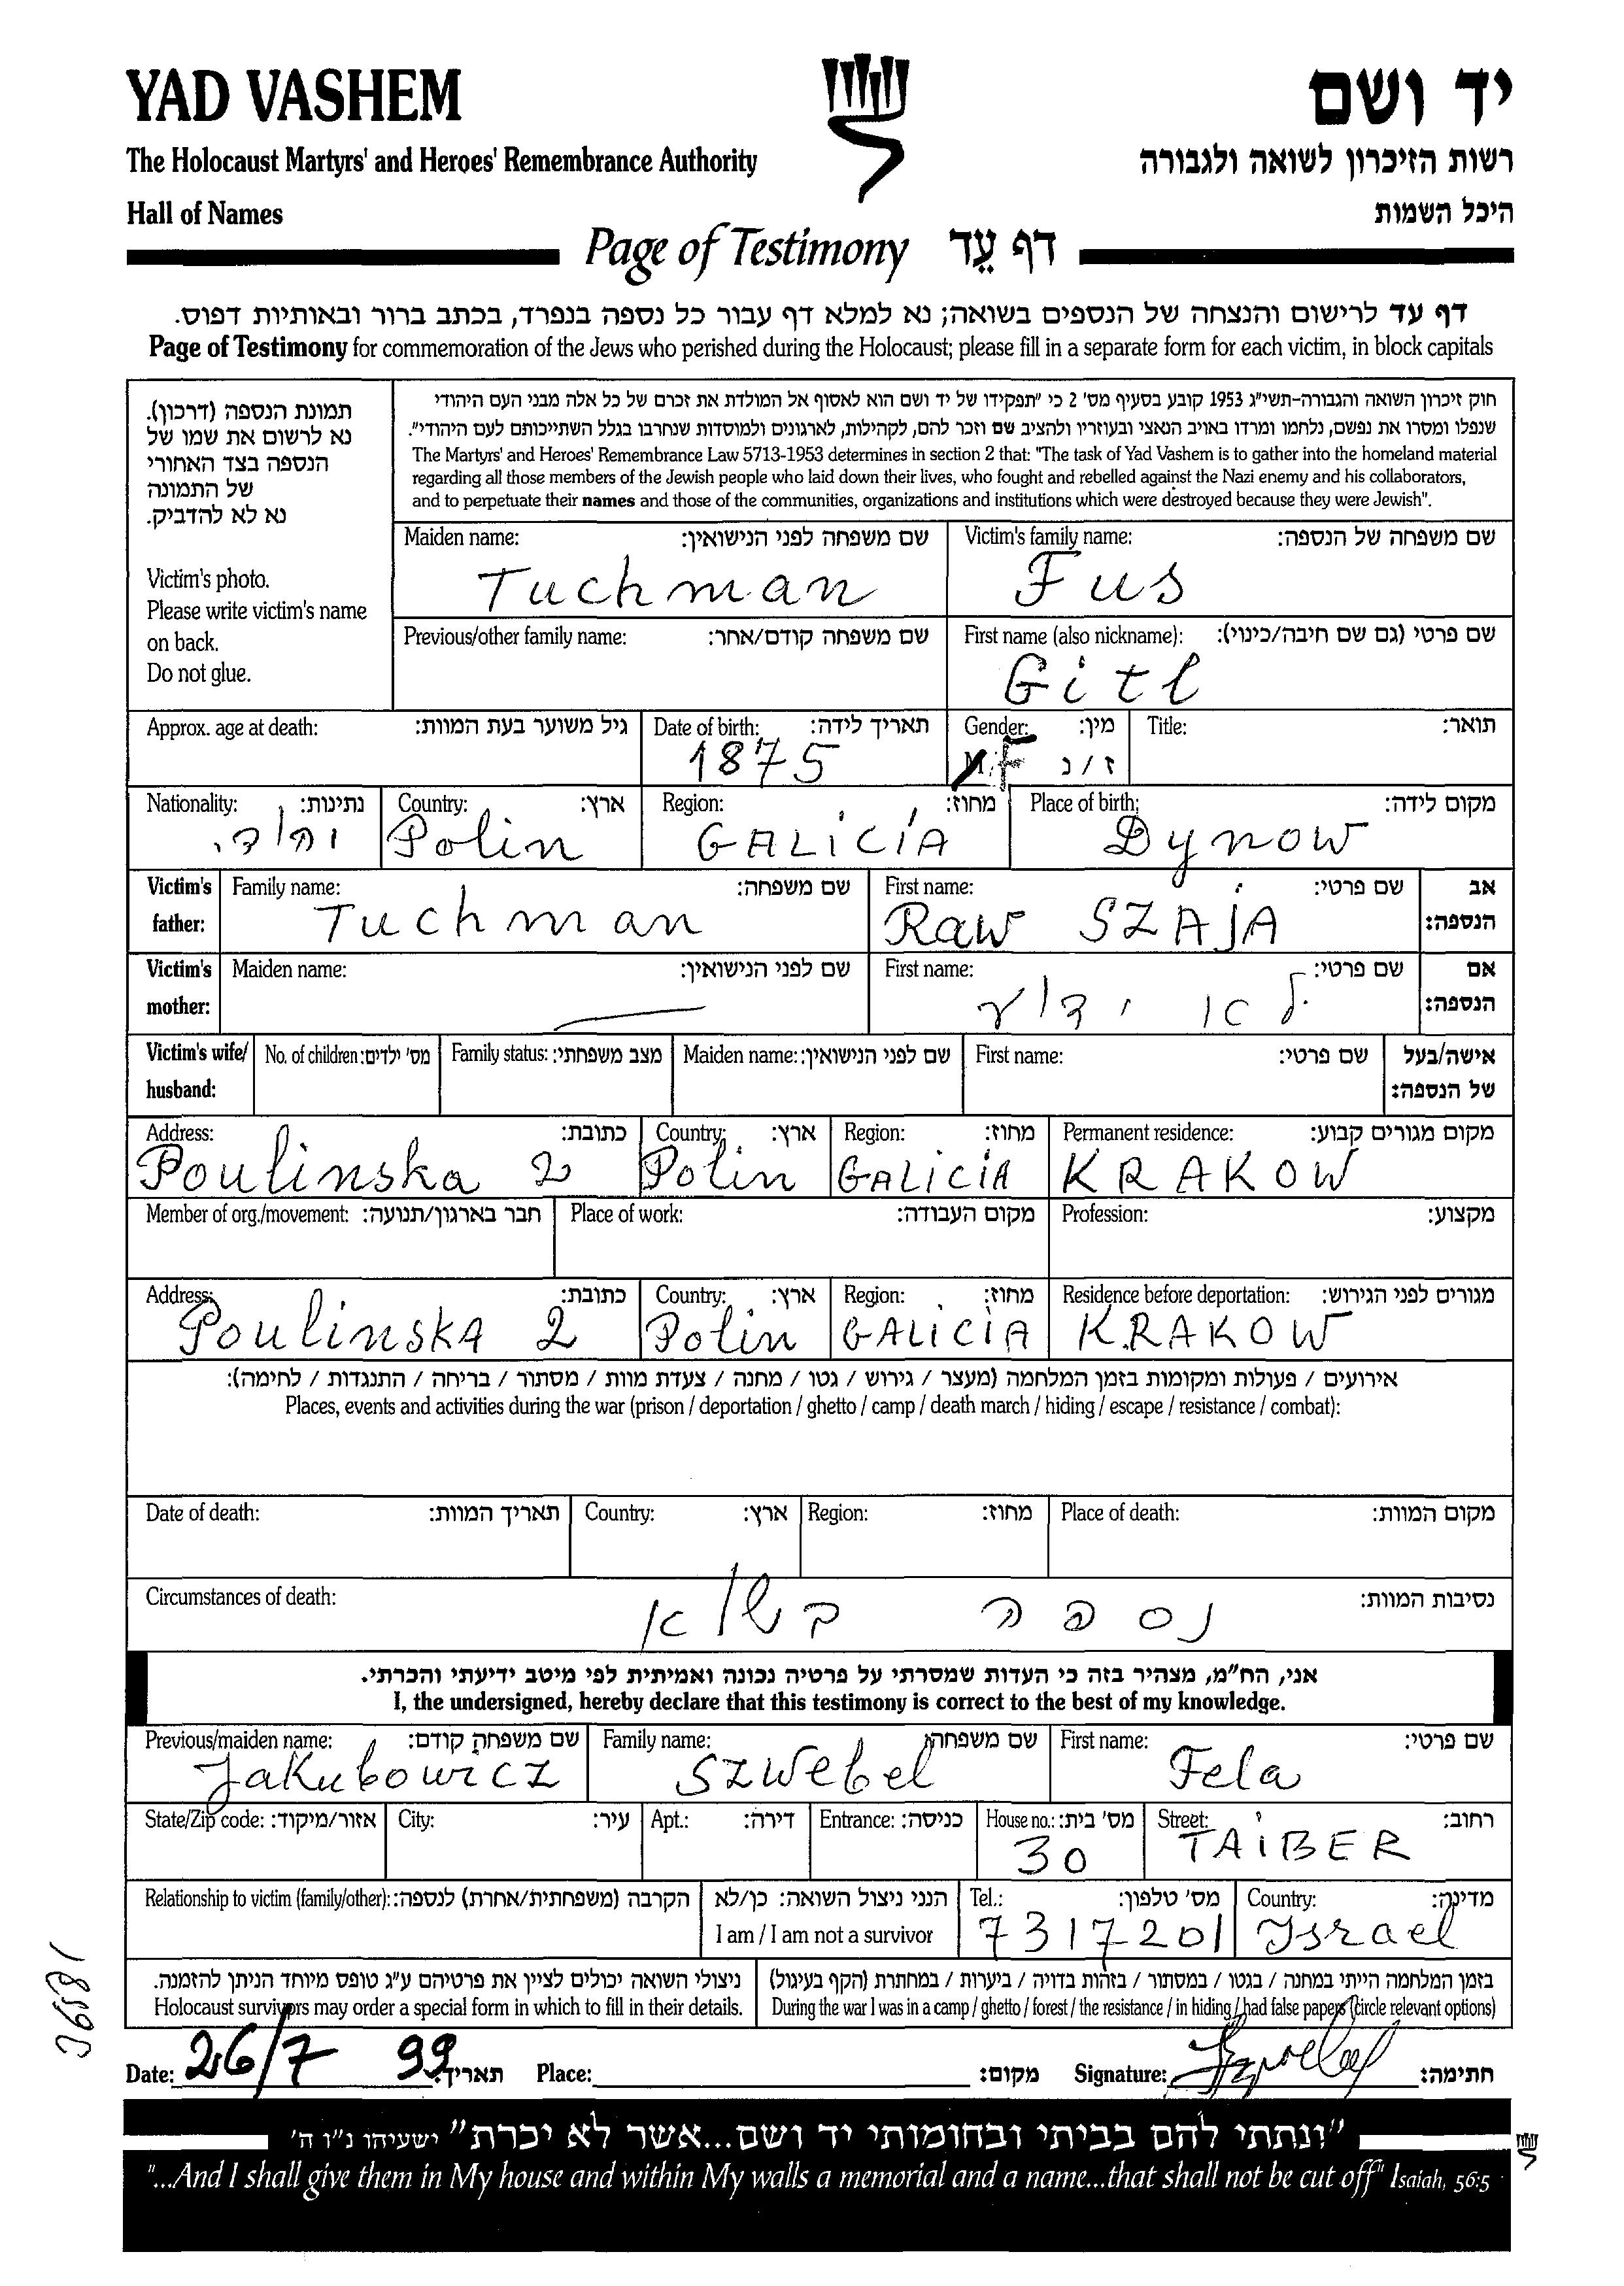 YAD VASHEM
יד ושם
The Holocaust Martyrs' and Heroes' Remembrance Authority
רשות הזיכרון לשואה ולגבורה
Hall of Names
היכל השמות
Page of Testimony דף עֵד
דף עד לרישום והנצחה של הנספים בשואה; נא למלא דף עבור כל נספה בנפרד, בכתב ברור ובאותיות דפוס.
Page of Testimony for commemoration of the Jews who perished during the Holocaust; please fill in a separate form for each victim, in block capitals
תמונת הנספה (דרכון).
נא לרשום את שמו של
הנספה בצד האחורי
של התמונה
נא לא להדביק.
Victim's photo.
Please write victim's name
on back.
Do not glue.
חוק זיכרון השואה והגבורה-תשי"ג 1953 קובע בסעיף מס' 2 כי "תפקידו של יד ושם הוא לאסוף אל המולדת את זכרם של כל אלה מבני העם היהודי
שנפלו ומסרו את נפשם, נלחמו ומרדו באויב הנאצי ובעוזריו ולהציב שם וזכר להם, לקהילות, לארגונים ולמוסדות שנחרבו בגלל השתייכותם לעם היהודי".
The Martyrs' and Heroes' Remembrance Law 5713-1953 determines in section 2 that: "The task of Yad Vashem is to gather into the homeland material
regarding all those members of the Jewish people who laid down their lives, who fought and rebelled against the Nazi enemy and his collaborators,
and to perpetuate their names and those of the communities, organizations and institutions which were destroyed because they were Jewish".
Maiden name: שם משפחה לפני הנישואין: Victim's family name: שם משפחה של הנספה:
Tuchman Fus
Previous/other family name: שם משפחה קודם/אחר: First name (also nickname): שם פרטי (גם שם חיבה/כינוי):
Gitl
Approx. age at death: גיל משוער בעת המוות: Date of birth: תאריך לידה: Gender: מין: Title: תואר:
1875 M/F ז/נ
Nationality: נתינות: Country: ארץ: Region: מחוז: Place of birth: מקום לידה:
Polin GALICIA Dynow
Victim's father: Family name: שם משפחה: First name: שם פרטי: אב הנספה:
Tuchman Raw SZAJA
Victim's mother: Maiden name: שם לפני הנישואין: First name: שם פרטי: אם הנספה:
Victim's wife/husband: No. of children: מס' ילדים: Family status: מצב משפחתי: Maiden name: שם לפני הנישואין: First name: שם פרטי: אישה/בעל של הנספה:
Address: כתובת: Country: ארץ: Region: מחוז: Permanent residence: מקום מגורים קבוע:
Poulinska 2 Polin GALICIA KRAKOW
Member of org./movement: חבר בארגון/תנועה: Place of work: מקום העבודה: Profession: מקצוע:
Address: כתובת: Country: ארץ: Region: מחוז: Residence before deportation: מגורים לפני הגירוש:
Poulinska 2 Polin GALICIA KRAKOW
אירועים / פעולות ומקומות בזמן המלחמה (מעצר / גירוש / גטו / מחנה / צעדת מוות / מסתור / בריחה / התנגדות / לחימה):
Places, events and activities during the war (prison / deportation / ghetto / camp / death march / hiding / escape / resistance / combat):
Date of death: תאריך המוות: Country: ארץ: Region: מחוז: Place of death: מקום המוות:
Circumstances of death: נסיבות המוות:
נספה
אני, הח"מ, מצהיר בזה כי העדות שמסרתי על פרטיה נכונה ואמיתית לפי מיטב ידיעתי והכרתי.
I, the undersigned, hereby declare that this testimony is correct to the best of my knowledge.
Previous/maiden name: שם משפחה קודם: Family name: שם משפחה: First name: שם פרטי:
Jakubowicz SZWebel Fela
State/Zip code: אזור/מיקוד: City: עיר: Apt.: דירה: Entrance: כניסה: House no.: מס' בית: Street: רחוב:
30 TAIBER
Relationship to victim (family/other): הקרבה (משפחתית/אחרת) לנספה: הנני ניצול השואה: כן/לא Tel.: מס' טלפון: Country: מדינה:
I am / I am not a survivor 7317201 Israel
ניצולי השואה יכולים לציין את פרטיהם ע"ג טופס מיוחד הניתן להזמנה. בזמן המלחמה הייתי במחנה / בגטו / במסתור / בזהות בדויה / ביערות / במחתרת (הקף בעיגול)
Holocaust survivors may order a special form in which to fill in their details. During the war I was in a camp / ghetto / forest / the resistance / in hiding / had false papers (circle relevant options)
Date: 26/7 99 תאריך: Place: מקום: Signature: חתימה:
"ונתתי להם בביתי ובחומותי יד ושם...אשר לא יכרת" ישעיהו נ"ו ה'
"...And I shall give them in My house and within My walls a memorial and a name...that shall not be cut off" Isaiah, 56:5